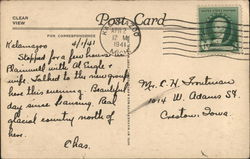 CLEAR
VIEW
Post Card
FOR CORRESPONDENCE
Kalamazoo
4/1/41
Stopped for a few hours in
Plainwell with Al Engle &
wife. Talked to the new group
here this evening. Beautiful
day since Lansing. Real
glacial country north of
here.
Chas.
APR 2
12 M
1941
Mr. C. H.
1014 W. Adams St.
Creston, Iowa.